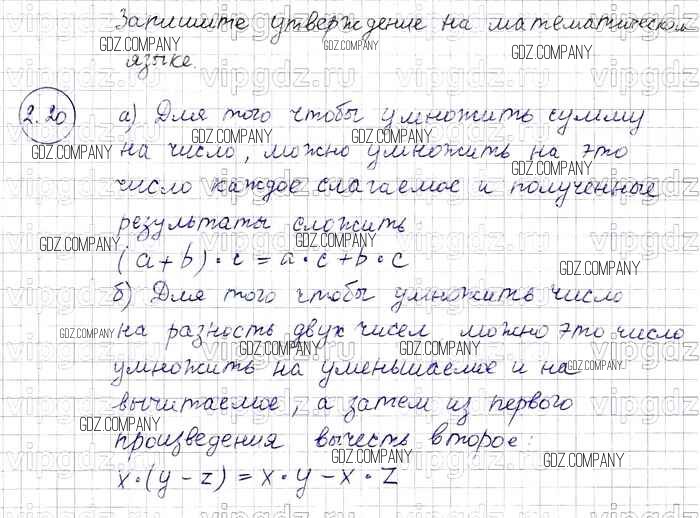 Запишите утверждение на математическом
языке.
2.20 а) Для того чтобы умножить сумму
на число, можно умножить на это
число каждое слагаемое и полученные
результаты сложить
(a+b)·c=a·c+b·c
б) Для того чтобы умножить число
на разность двух чисел можно это число
умножить на уменьшаемое и на
вычитаемое, а затем из первого
произведения вычесть второе:
x·(y-z)=x·y-x·z